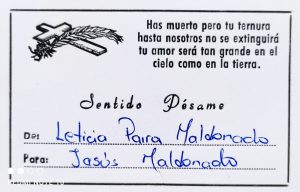 Has muerto pero tu ternura
hasta nosotros no se extinguirá
tu amor será tan grande en el
cielo como en la tierra.
Sentido Pésame
De: Leticia Parra Maldonado
Para: Jasús Maldonado